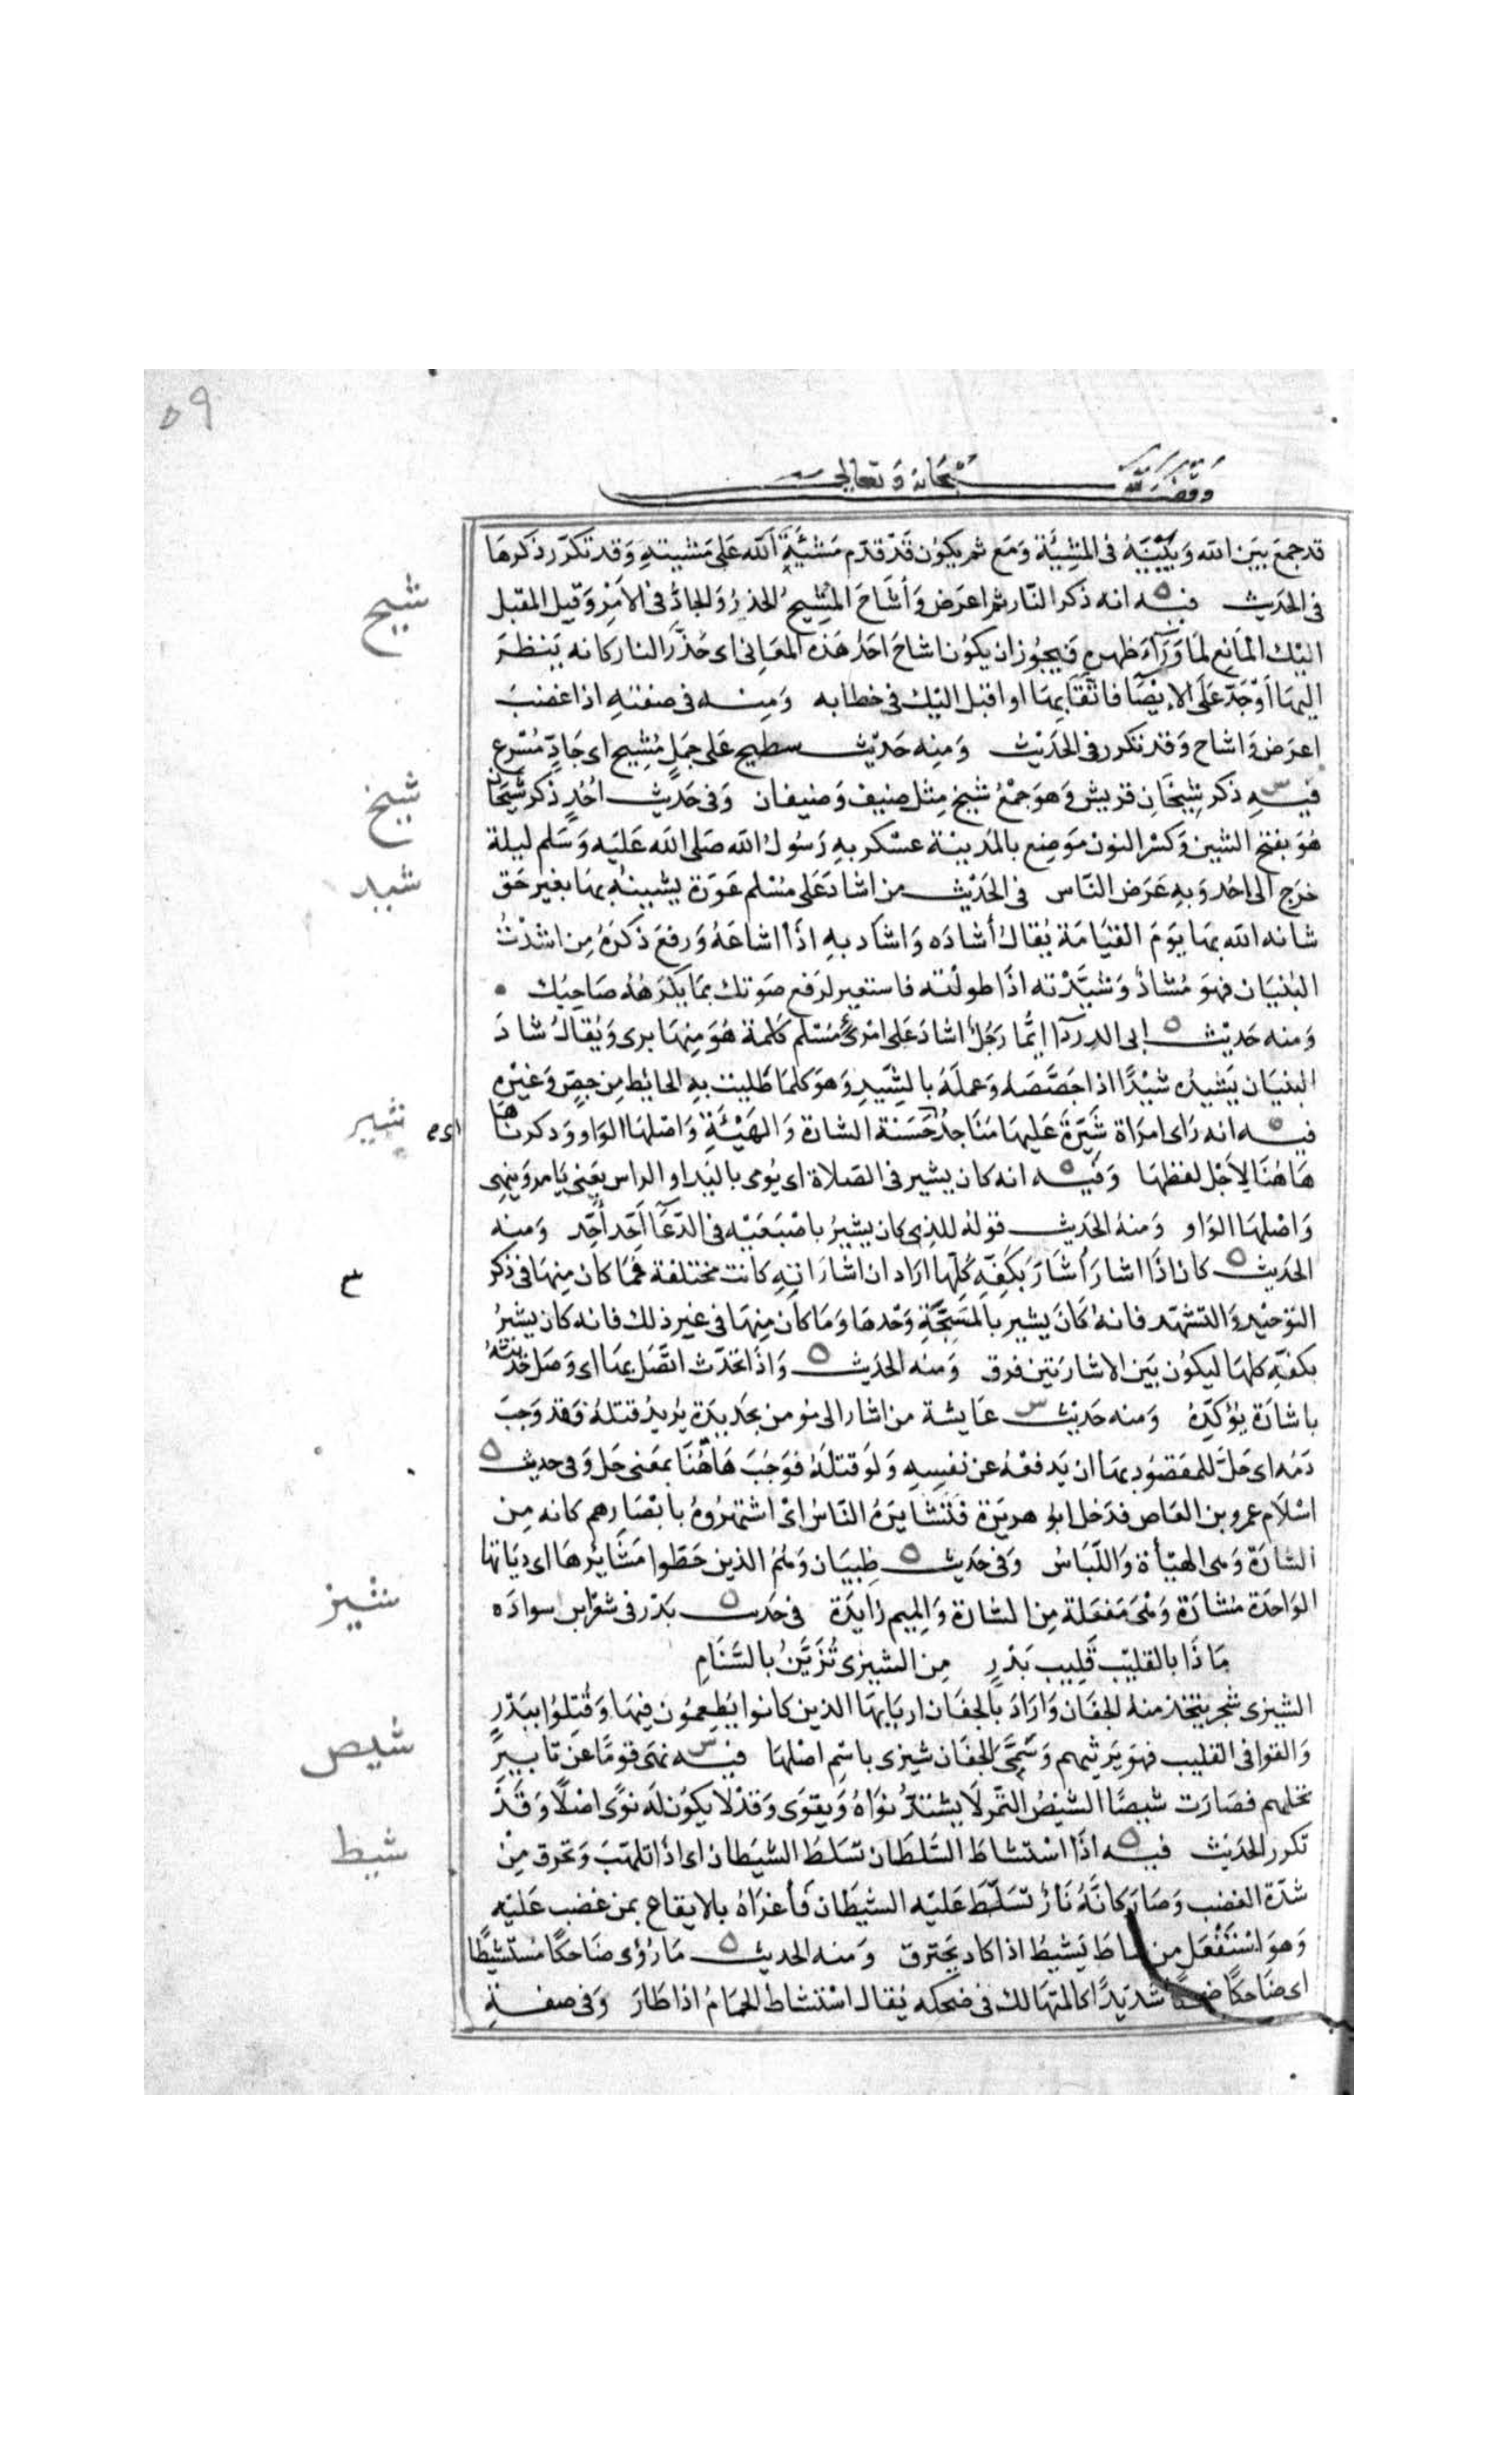 ٥٩
وقف لله سبحانه وتعالى
قد جمع بين الله وبينه في المشيئة ومع ثم يكون قد قدم مشيئة الله على مشيته وقد تكرر ذكرها
شيح
في الحديث فيه انه ذكر النار ثم اعرض وأشاح المشيح الحذر والجاد في الامر وقيل المقبل
اليك المانع لما وراء ظهره فيجوز ان يكون اشاح احد هذه المعاني اى حذر النار كانه ينظر
اليها أو جد على الايصا فاتقايها او اقبل اليك في خطابه ومنه في صفته اذا غضب
اعرض واشاح وقد تكرر في الحديث ومنه حديث سطيح على جمل مشيح اى جاد مسرع
شيخ
فيه ذكر شيخان قريش وهو جمع شيخ مثل ضيف وضيفان وفى حديث احد ذكر شيخان
هو بفتح الشين وكسر النون موضع بالمدينة عسكر به رسول الله صلى الله عليه وسلم ليلة
شيد
خرج الى احد وبه عرض الناس في الحديث من اشاد على مسلم عورة يشينه بها بغير حق
شانه الله بها يوم القيامة يقال أشاده واشاد به اذا اشاعه ورفع ذكره من اشدت
البنيان فهو مشاد وشيدته اذا طولته فاستعير لرفع صوتك بما يكرهه صاحبك
ومنه حديث ابى الدرداء ايما رجل اشاد على امرئ مسلم كلمة هو منها برى ويقال شاد
البنيان يشيده شيدا اذا جصصه وعمله بالشيد وهو كلما طليت به الحائط من جص وغيره
شير
فيه انه راى امراة شيرة عليها مناجد اى حسنة الشارة والهيئة واصلها الواو وذكرناها
هاهنا لاجل لفظها وفيه انه كان يشير في الصلاة اى يومى باليد او الراس يعنى يامر وينهى
واصلها الواو ومنه الحديث قوله للذى كان يشير باصبعيه في الدعا أحد أحد ومنه
الحديث كان اذا اشار أشار بكفه كلها اراد ان اشاراته كانت مختلفة فما كان منها في ذكر
التوحيد والتشهد فانه كان يشير بالمسبحة وحدها وما كان منها في غير ذلك فانه كان يشير
بكفه كلها ليكون بين الاشارتين فرق ومنه الحديث واذا تحدث اتصل بها اى وصل حديثه
باشارة يؤكده ومنه حديث عايشة من اشار الى مومن بحديدة يريد قتله فقد وجب
دمه اى حل للمقصود بها ان يدفعه عن نفسه ولو قتله فوجب هاهنا بمعنى حل وفى حديث
اسلام عمرو بن العاص فدخل ابو هريرة فتشايره الناس اى اشتهروه بابصارهم كانه من
الشارة وهى الهيأة واللباس وفى حديث ظبيان وهم الذين خطوا مشايرها اى دياتها
شيز
الواحدة مشارة وهى مفعلة من الشارة والميم زايدة فى حديث بدر فى شعر ابن سواده
ماذا بالقليب قليب بدر من الشيزى تزين بالسنام
الشيزى شجر يتخذ منه الجفان واراد بالجفان اربابها الذين كانوا يطعمون فيها وقتلوا ببدر
شيص
والقوا في القليب فهو يرثيهم وسمى الجفان شيزى باسم اصلها فيه نهى قوما عن تابير
نخلهم فصارت شيصا الشيص التمر لا يشتد نواه ويقوى وقد لا يكون له نوى اصلا وقد
شيط
تكرر الحديث فيه اذا استشاط السلطان تسلط الشيطان اى اذا تلهب وتحرق من
شدة الغضب وصار كانه نار تسلط عليه الشيطان فأغراه بالايقاع بمن غضب عليه
وهو استفعل من شاط يشيط اذا كاد يحترق ومنه الحديث ما رؤى ضاحكا مستشيطا
اى ضاحكا ضحكا شديدا كالمتهالك في ضحكه يقال استشاط الحمام اذا طار وفى صفة